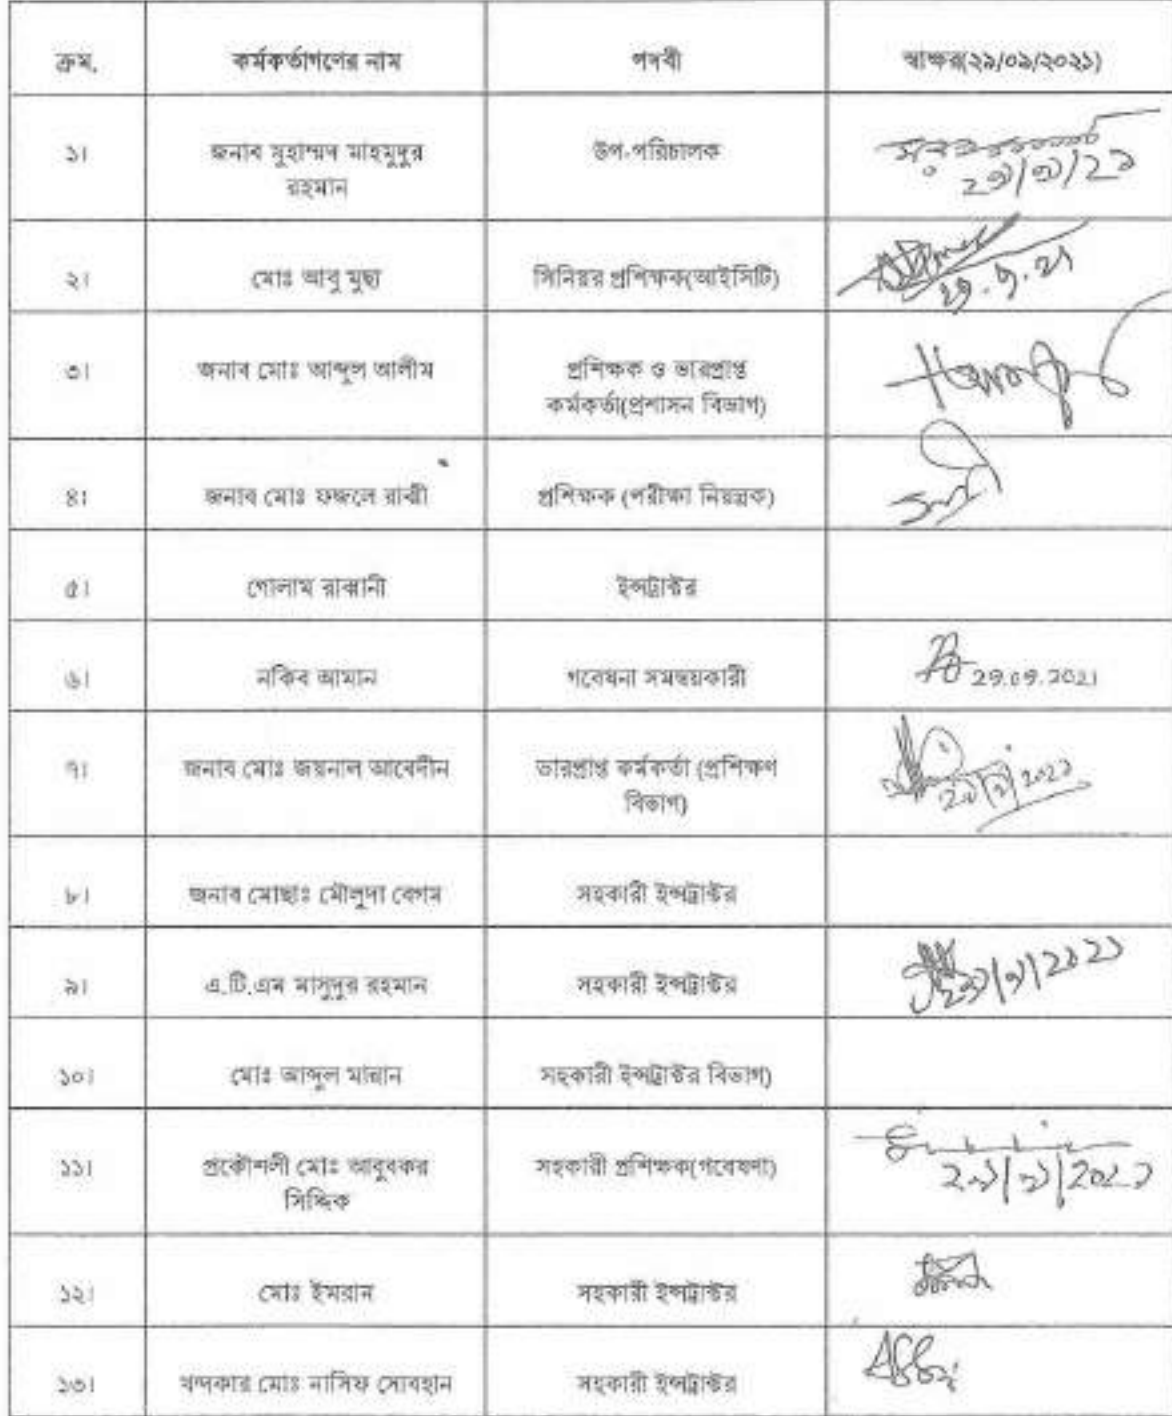 ক্রম. কর্মকর্তাগণের নাম পদবী স্বাক্ষর(২৯/০৯/২০২১)
১। জনাব মুহাম্মদ মাহমুদুর উপ-পরিচালক
রহমান ২৯/৯/২১
২। মোঃ আবু মুছা সিনিয়র প্রশিক্ষক(আইসিটি) 29.9.21
৩। জনাব মোঃ আব্দুল আলীম প্রশিক্ষক ও ভারপ্রাপ্ত
কর্মকর্তা(প্রশাসন বিভাগ)
৪। জনাব মোঃ ফজলে রাব্বী প্রশিক্ষক (পরীক্ষা নিয়ন্ত্রক)
৫। গোলাম রাব্বানী ইন্সট্রাক্টর
৬। নকিব আমান গবেষনা সমন্বয়কারী 29.09.2021
৭। জনাব মোঃ জয়নাল আবেদীন ভারপ্রাপ্ত কর্মকর্তা (প্রশিক্ষণ
বিভাগ) ২৯/৯/২০২১
৮। জনাব মোছাঃ মৌলুদা বেগম সহকারী ইন্সট্রাক্টর
৯। এ.টি.এম মাসুদুর রহমান সহকারী ইন্সট্রাক্টর ২৯/৯/২০২১
১০। মোঃ আব্দুল মান্নান সহকারী ইন্সট্রাক্টর বিভাগ)
১১। প্রকৌশলী মোঃ আবুবকর সহকারী প্রশিক্ষক(গবেষণা)
সিদ্দিক ২৯/৯/২০২১
১২। মোঃ ইমরান সহকারী ইন্সট্রাক্টর
১৩। খন্দকার মোঃ নাসিফ সোবহান সহকারী ইন্সট্রাক্টর